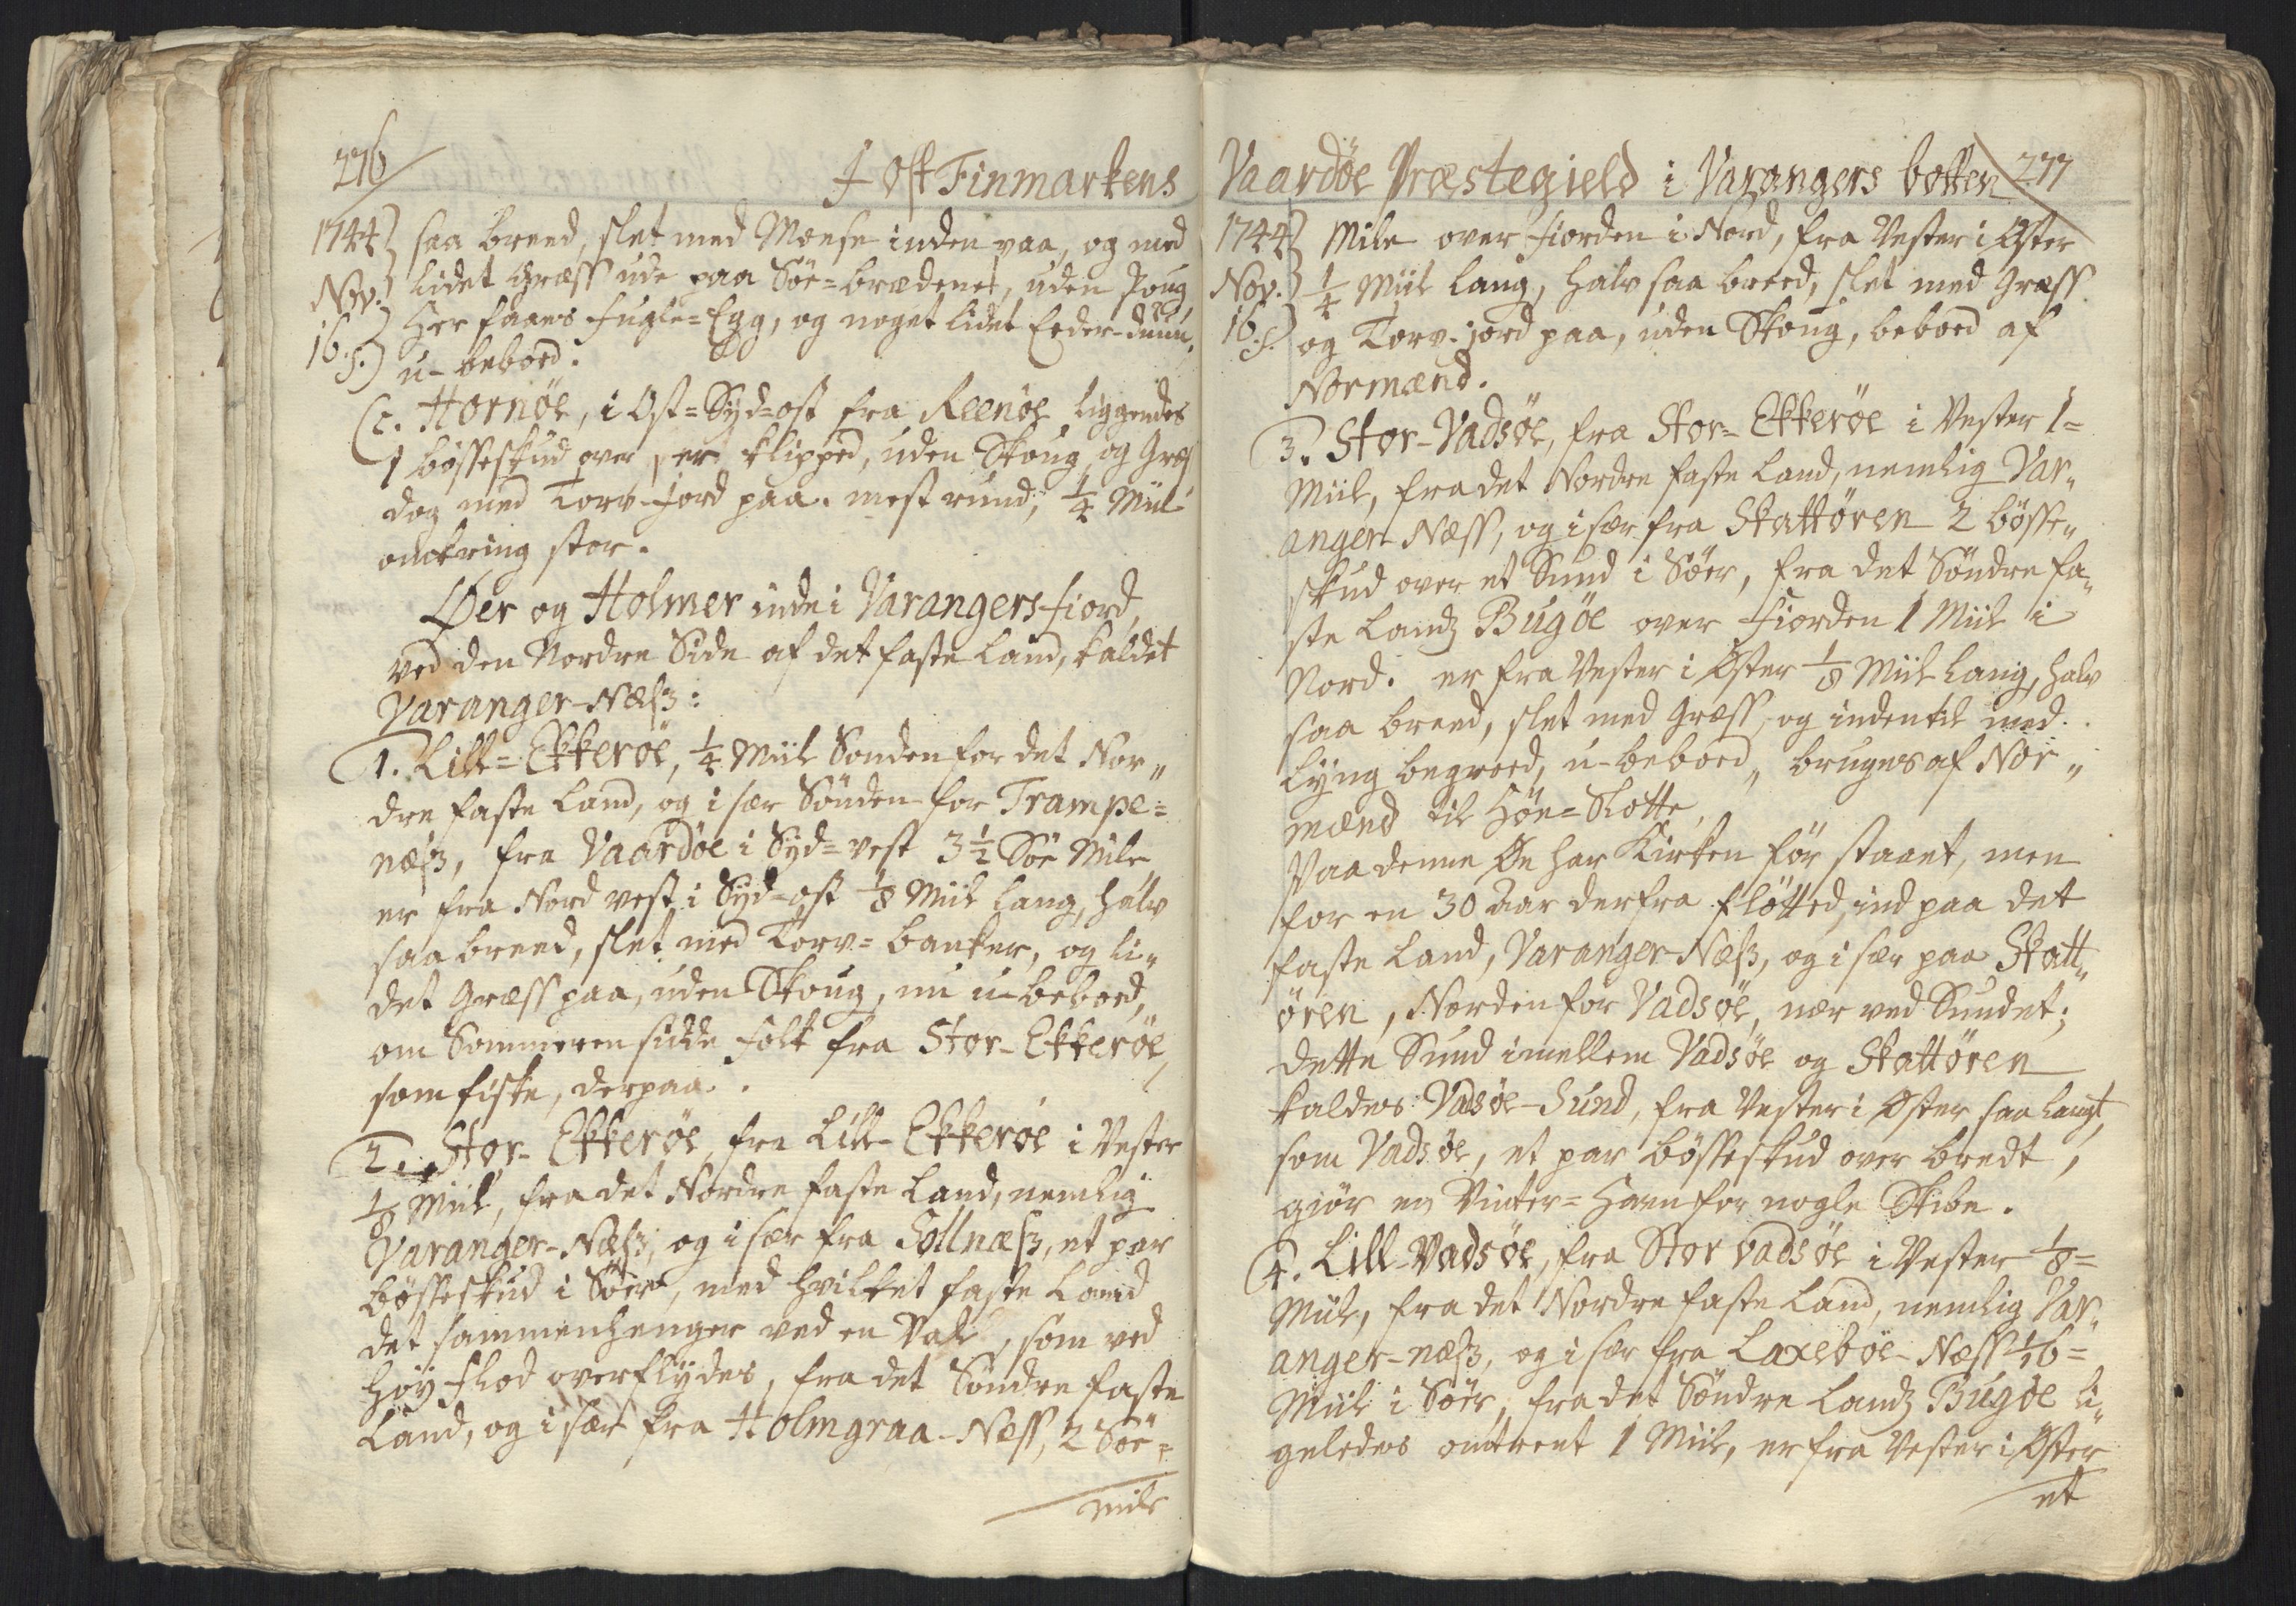 276
I Ost Finmarkens
1744 saa breed, slet med Moese inden paa, og med
Nov. lidet Græss ude paa Söe=brædene, uden Skoug
16. s. Her faaes Fugle=Egg, og noget lidet Eeder-duun,
u-beboed.
c. Hornöe, i Ost=Syd=ost fra Reenöe liggendes
1 bösseskud over, er klipped, uden Skoug og Græs
dog med Torv-Jord paa. mest rund, 1/4 Miil
omkring stor.
Öer og Holmer inde i Varangers fiord,
ved den Nordre Side af det faste Land, kaldet
Varanger-Næss:
1. Lille=Ekkeröe, 1/4 Miil Sönden for det Nor„
dre faste Land, og i sær Sönden for Trampe=
næss, fra Vaardöe i Syd=vest 3 1/2 Söe Mile,
er fra Nordvest i Syd=ost 1/8 Miil lang, halv
saa breed, slet med Torv=banker, og li„
det Græss paa, uden Skoug, nu u-beboed,
om Sommeren sidde Folk fra Stor-Ekkeröe,
som fiske, derpaa.
2. Stor-Ekkeröe, fra Lill-Ekkeröe i Vester
1/8 Miil, fra det Nordre faste Land, nemlig
Varanger-Næss, og i sær fra Gollnæss, et par
bösseskud i Söer, med hvilket faste Land
det sammenhenger ved en Val, som ved
höy-flod overflydes, fra det Söndre faste
Land, og i sær fra Holmgraa-Næss, 2 Söe=
mile
Vaardöe Præstegield i Varangers botten 277
1744 Mile over fiorden i Nord, fra Vester i Öster
Nov. 1/4 Miil lang, halv saa breed, slet med Græss
16. s. og Torv-jord paa, uden Skoug, beboed af
Normænd.
3. Stor-Vadsöe, fra Stor-Ekkeröe i Vester 1=
Miil, fra det Nordre faste Land, nemlig Var„
anger-Næss, og i sær fra Skattören 2 bösse„
skud over et Sund i Söer, fra det Söndre fa„
ste Landz Bugöe over Fiorden 1 Miil i
Nord. er fra Vester i Öster 1/8 Miil lang, halv
saa breed, slet med Græss, og indentil med
Lyng begroed, u-beboed, bruges af Nor„
mænd til Höe=Slotte.
Paa denne Öe har Kirken för staaet, men
for en 30 Aar derfra flötted, ind paa det
faste Land, Varanger-Næss, og i sær paa Skatt„
ören, Norden for Vadsöe, nær ved Sundet;
dette Sund imellem Vadsöe og Skattören
kaldes Vadsöe-Sund, fra Vester i Öster saa langt,
som Vadsöe, et par bösseskud over bredt,
giör en Vinter=Havn for nogle Skibe.
4. Lill-Vadsöe, fra Stor vadsöe i Vester 1/8=
Miil, fra det Nordre faste Land, nemlig Var„
anger-næss, og i sær fra Laxeböe-Næss 1/16=
Miil i Söer, fra det Söndre Landz Bugöe li„
geledes omtrent 1 Miil, er fra Vester i Öster
et